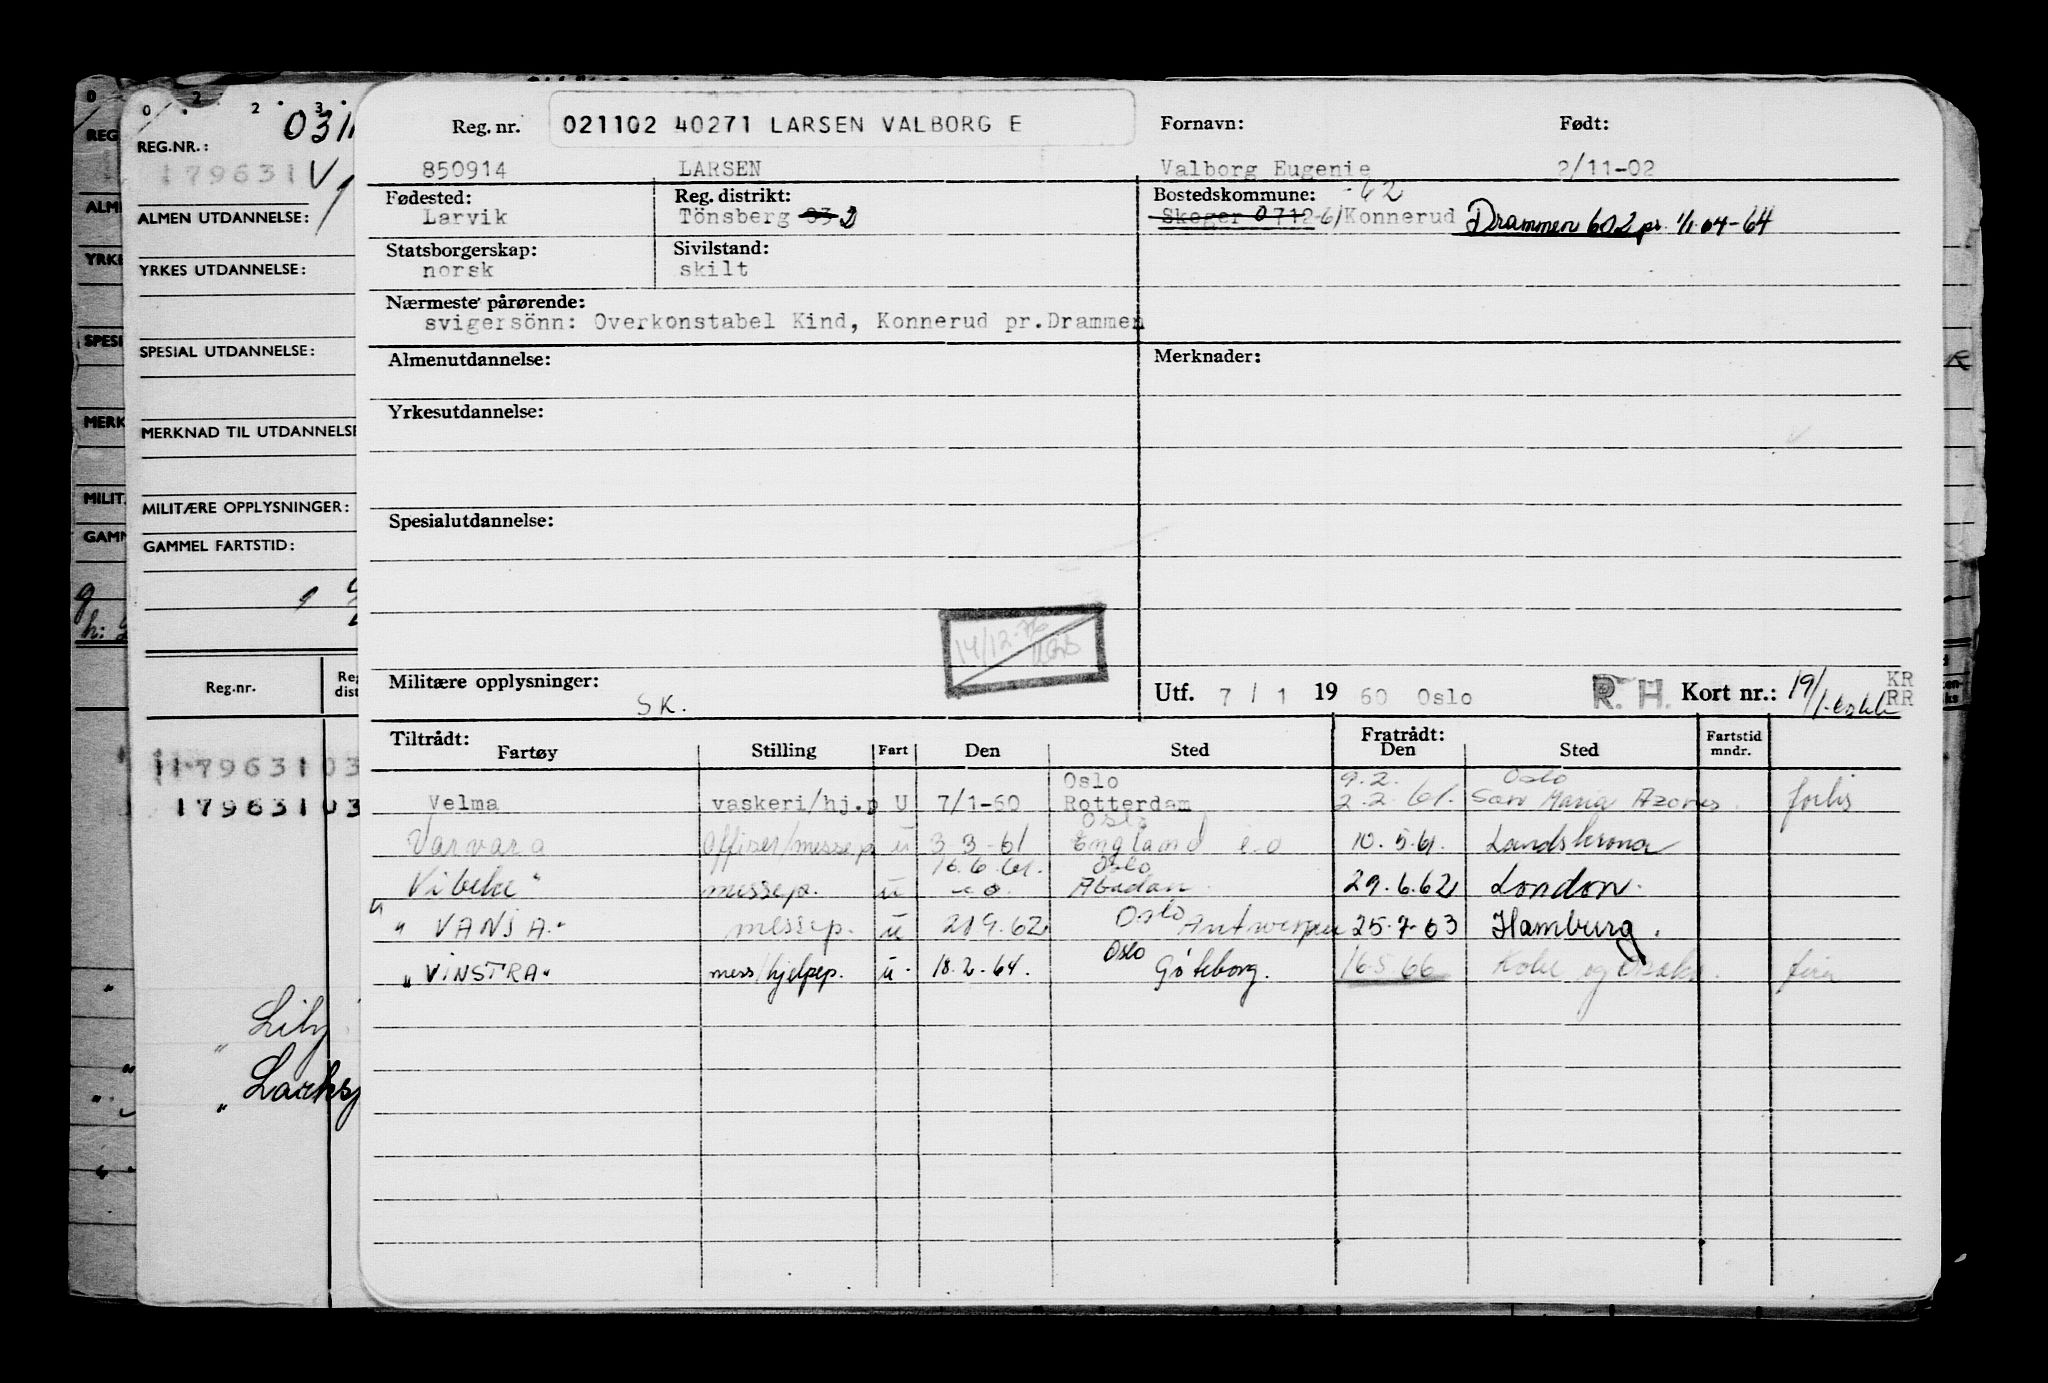 Reg. nr. 021102 40271 LARSEN VALBORG E Fornavn: Født:
850914 LARSEN Valborg Eugenie 2/11-02
Fødested: Reg. distrikt: Bostedskommune: -62
Larvik Tönsberg 03 2 Skoger 0712-61 Konnerud Drammen 602 pr. 1/1 04-64
Statsborgerskap: Sivilstand:
norsk skilt
Nærmeste pårørende:
svigersönn: Overkonstabel Kind, Konnerud pr.Drammen
Almenutdannelse: Merknader:
Yrkesutdannelse:
Spesialutdannelse:
14/12-76
Militære opplysninger: SK.
Utf. 7 / 1 19 60 Oslo R. H. Kort nr.: 19/1 KR
RR
Tiltrådt: Fratrådt:
Fartøy Stilling Fart Den Sted Den Sted Fartstid mndr.
Oslo 9.2. Oslo
Velma vaskeri/hj.p U 7/1-60 Rotterdam 2.2.61. San Maria Azores forlis
Oslo
Varvara Offiser/messep u 3-3-61 England e.o 10.5.61. Landskrona
16.6.61. Oslo
Vibeke" messep. u e.o. Abadan. 29.6.62 London.
" VANJA." messep. u 219.62 Oslo Antwerpen 25.7.63 Hamburg.
"VINSTRA" mess/hjelpep. u. 18.2.64. Oslo Göteborg. 16.5.66 Kobe og Osaka. ferie
0 . 2 . 2 . 3 .
REG.NR.: 0311
179631 V
ALMEN UTDANNELSE:
YRKES UTDANNELSE:
SPESIAL UTDANNELSE:
MERKNAD TIL UTDANNELSE
MILITÆRE OPPLYSNINGER:
GAMMEL FARTSTID:
Reg.nr. Reg
dist
179631 03
179631 03
" Lily
" Larksp
D
REG
ALM
YRKE
SPESI
MERK
MILIT
GAMM